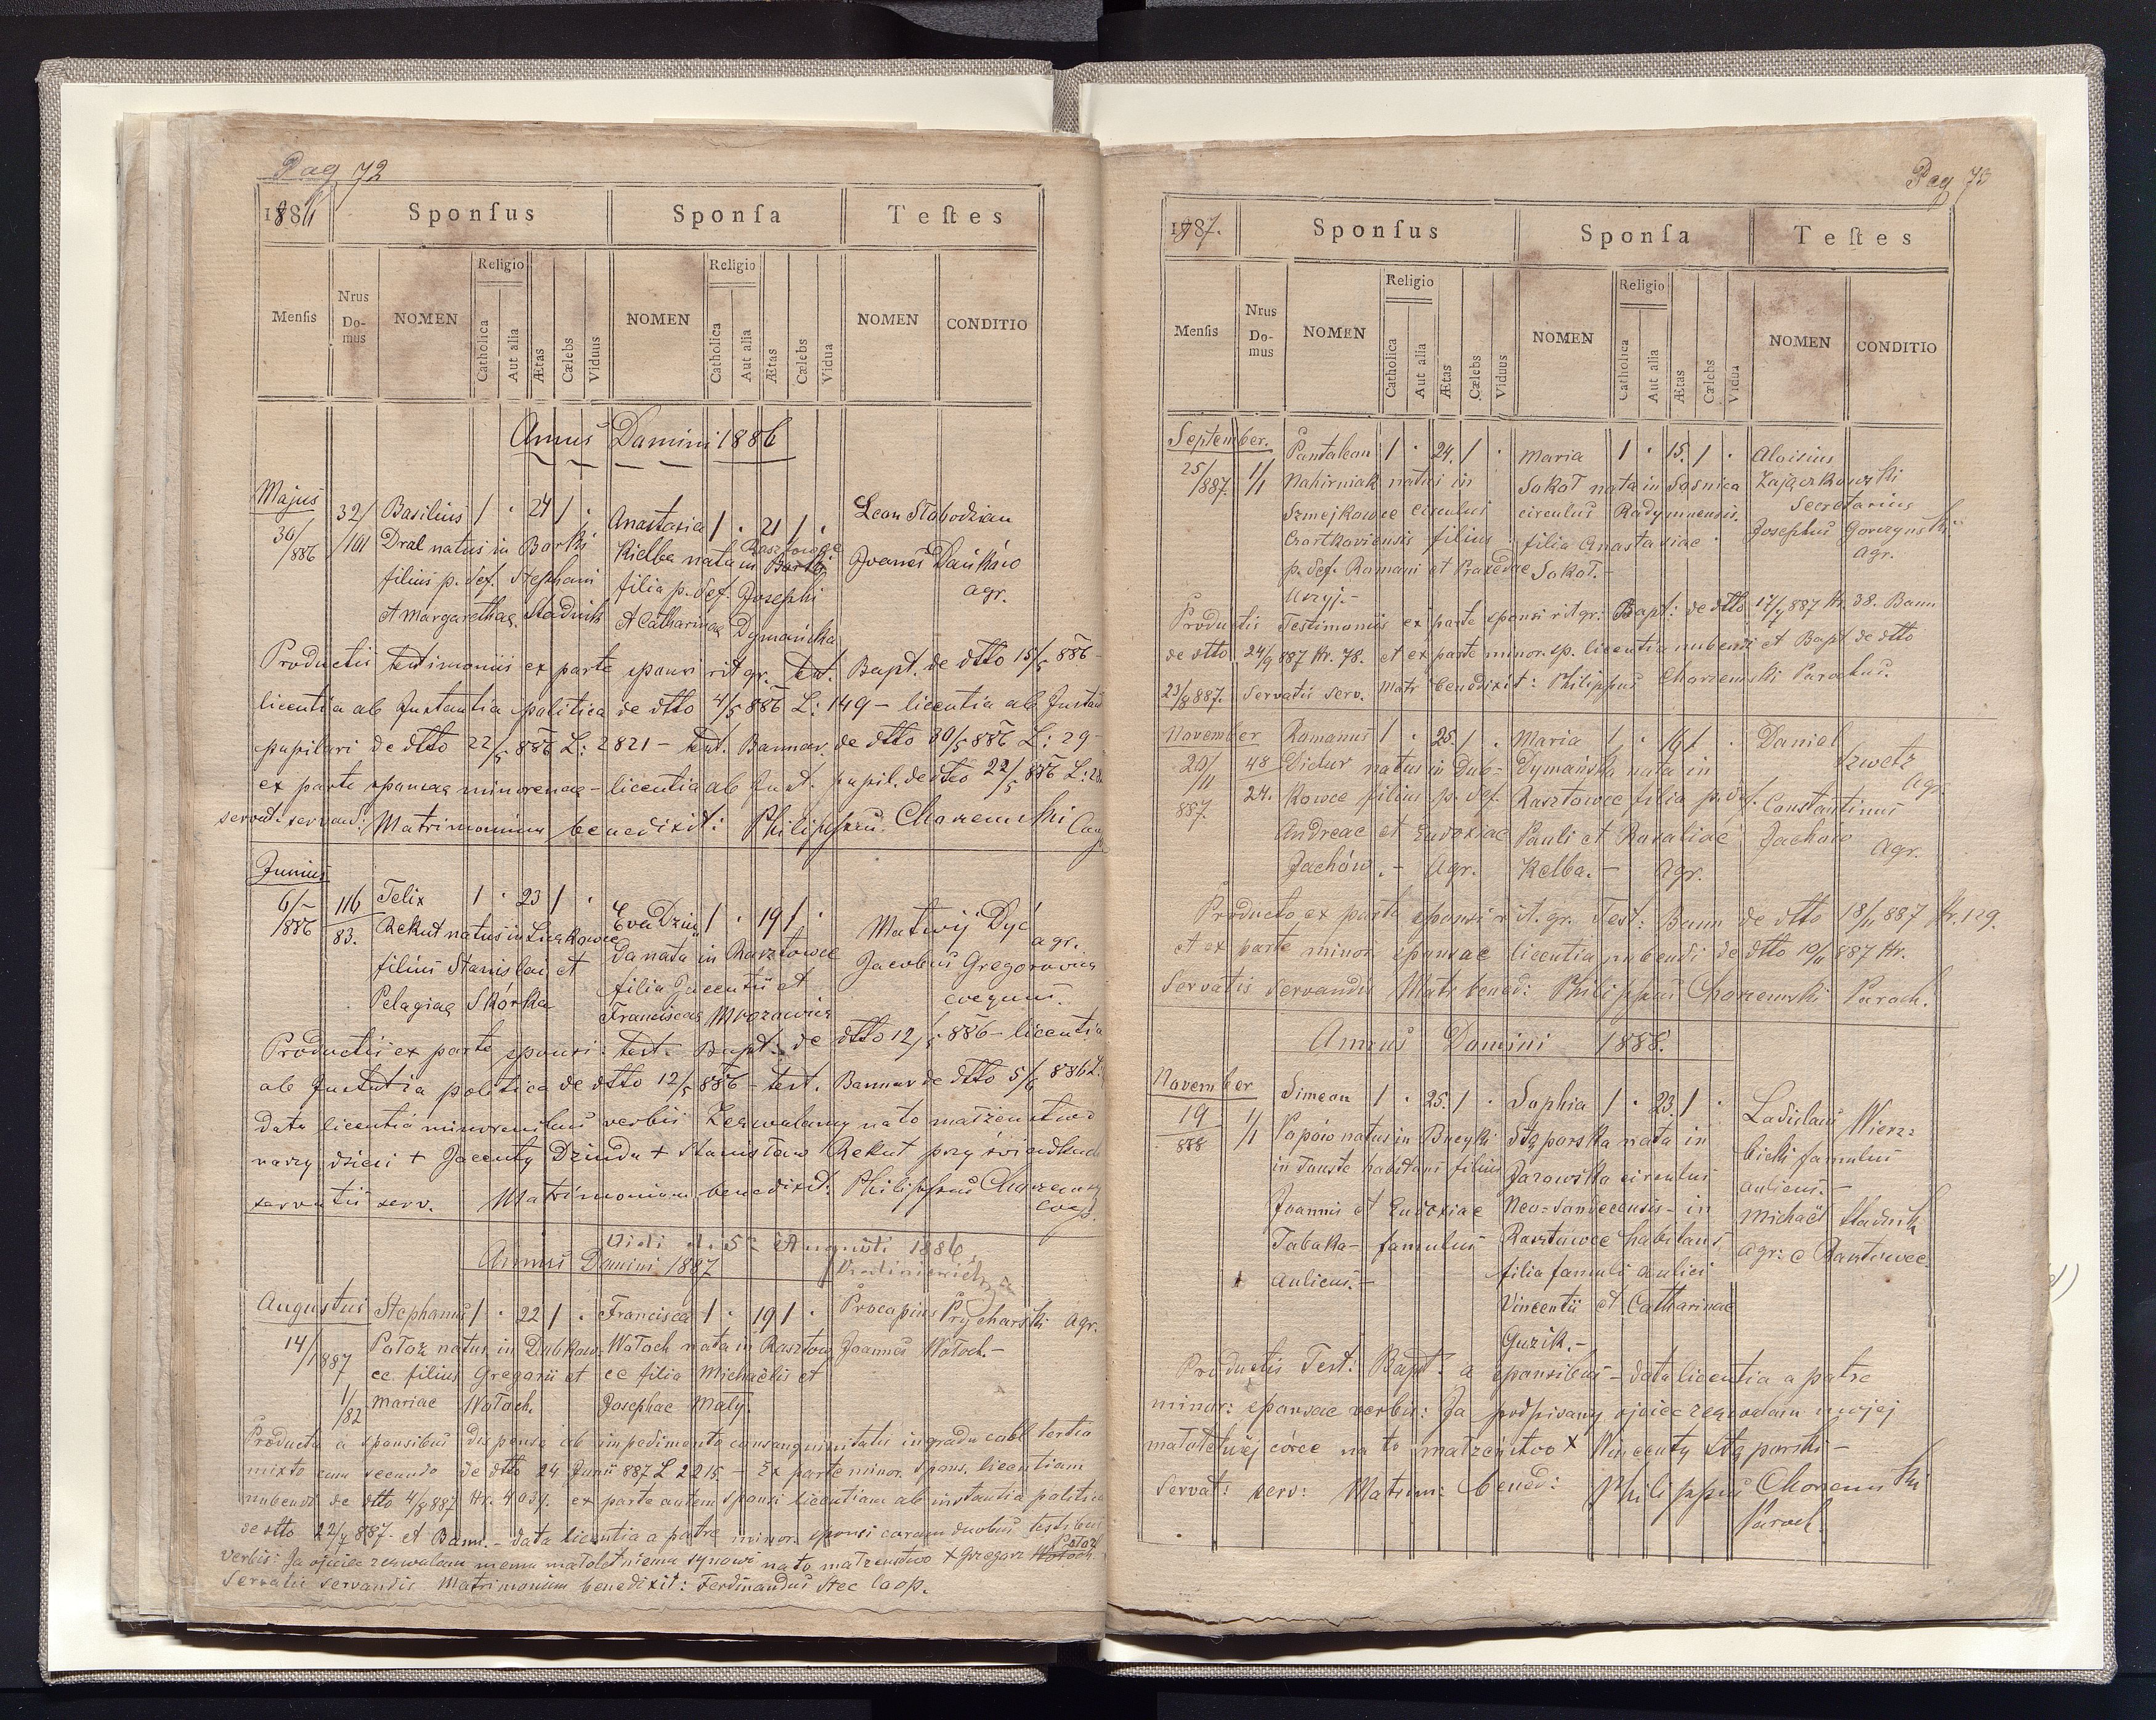 Pag 72
1886 Sponſus Sponſa Teſtes
Menſis Nrus Domus NOMEN Religio Catholica Aut alia Ætas Cælebs Viduus NOMEN Religio Catholica Aut alia Ætas Cælebs Vidua NOMEN CONDITIO
Annus Domini 1886
Majus
30/886 32/101 Basilius 1 · 24 1 · Anastasia 1 · 21 1 · Leon Słobodzian
Dral natus in Borki Kielba nata in Rasztowce Borki Joannes Dańków
filius p. def. Stephani filia p. def. Josephi agr.
et Margarethae Stadnik et Catharinae Dymańska
Productis testimoniis ex parte sponsi rit gr. test. Bapt. de dtto 15/5 886 –
licentia ab Instantia politica de dtto 4/5 886 L: 149 – licentia ab Instan
pupilari de dtto 22/5 886 L: 2821 – test. Bannor. de dtto 30/5 886 L: 29 –
ex parte sponsae minorenae – licentia ab Inst. pupil. de dtto 22/5 886 L:
servat. servand: Matrimonium benedixit: Philippus Chorzemski Coop
Junius
6/886 116/83. Felix 1 · 23 1 · Eva Dziu 1 · 19 1 · Matwij Dyć
Rekut natus in da nata in Rasztowce agr.
filius Stanislai et filia Jacentii et Jacobus Gregorowicz
Pelagiae Skórka Franciscae Mrozowicz
Productis ex parte sponsi: test. Bapt. de dtto 12/5 886 – licentia
ab Instantia politica de dtto 12/5 886 – test. Bannor de dtto 5/6 886 L:
data licentia minorenibus verbis Zezwalamy na to małżeństwo
naszy dzieci + Jacenty Dziuda + Stanisław Rekut przy świadkach
servatis serv. Matrimonium benedixit: Philippus Chorzemski
coop.
Vidi d. 5 Augusti 1886.
Annus Domini 1887
Augustus Stephanus 1 · 22 1 · Francisca 1 · 19 1 · Procopius Prycharski agr.
14/1887 Pałaz natus in Dubkow- Wołoch nata in Rasztow Joannes Wołoch. –
ce. filius Gregorii et ce filia Michaëlis et
1/82 Mariae Wołoch. Josephae Mały.
Producta a sponsibus dispensa ab impedimento consanguinitatis in gradu coll. tertio
mixto cum secundo de dtto 24 Junii 887 L 2215. – Ex parte minor. spons. licentiam
nubendi de dtto 4/8 887 Nr. 4039. ex parte autem sponsi licentiam ab instantia politica
de dtto 22/7 887. et Bann. – data licentia a patre minor. sponsi coram duobus testibus
Verbis: Ja ojciec zezwalam memu małoletniemu synowi na to małżeństwo + Grzegorz Wołoch. Pałaz
Servatis servandis Matrimonium benedixit: Ferdinandus Stec Coop.
Pag 73
1887. Sponſus Sponſa Teſtes
Menſis Nrus Domus NOMEN Religio Catholica Aut alia Ætas Cælebs Viduus NOMEN Religio Catholica Aut alia Ætas Cælebs Vidua NOMEN CONDITIO
September. Pantaleon 1 · 24. 1 · Maria 1 · 15. 1 · Aloisius
25/887. 1/1 Nahirniak natus in Sokoł nata in Sośnica Zajączkowski
Szmejkowce circulus circulus Radymnensis. Secretarius
Czortkoviensis filius filia Anastasiae Josephus Gorczynski
p. def. Romani et Praxedae Sokoł. – agr.
Uszyj. –
Productis Testimoniis ex parte sponsi rit gr: Bapt: de dtto 14/9 887 Nr. 38. Bann
de dtto 24/9 887 Nr. 78. et ex parte minor. sp. licentia nubendi et Bapt de dtto
23/8 887. Servatis serv. Matr benedixit: Philippus Chorzemski Parochus.
November Romanus 1 · 25. 1 · Maria 1 · 19 1 · Daniel
20/11 887. 48/24. Didur natus in Dub- Dymańska nata in Szwetz
kowce filius p. def. Rasztowce filia p. def. Constantinus agr.
Andreae et Eudoxiae Pauli et Rosaliae Jachów
Jachów. – Agr. Kelba. – Agr. Agr.
Producto ex parte sponsi rit. gr. Test: Bann de dtto 18/11 887 Nr. 129.
et ex parte minor. sponsae licentia nubendi de dtto 10/11 887 Nr.
Servatis Servandis Matr bened: Philippus Chorzemski Paroch.
Annus Domini 1888.
November Simeon 1 · 25. 1 · Sophia 1 · 23. 1 · Ladislaus Wierz-
19/888 1/1 Papów natus in Bucyki Stąporska nata in bicki famulus
in Touste habitans filius Jazowska circulus aulicus. –
Joannis et Eudoxiae Neo-Sandecensis – in Michaël Stadnik
Tabaka – famulus Rasztowce habitans agr: e Rasztowce
Aulicus. – filia famuli aulici
Vincentii et Catharinae
Guzik. –
Productis Test: Bapt. a sponsibus – data licentia a patre
minor: sponsae verbis: Ja podpisany ojciec zezwalam mojej
małoletniej córce na to małżeństwo + Wincenty Stąporski –
Servat: serv: Matrim: bened: Philippus Chorzemski
Paroch.